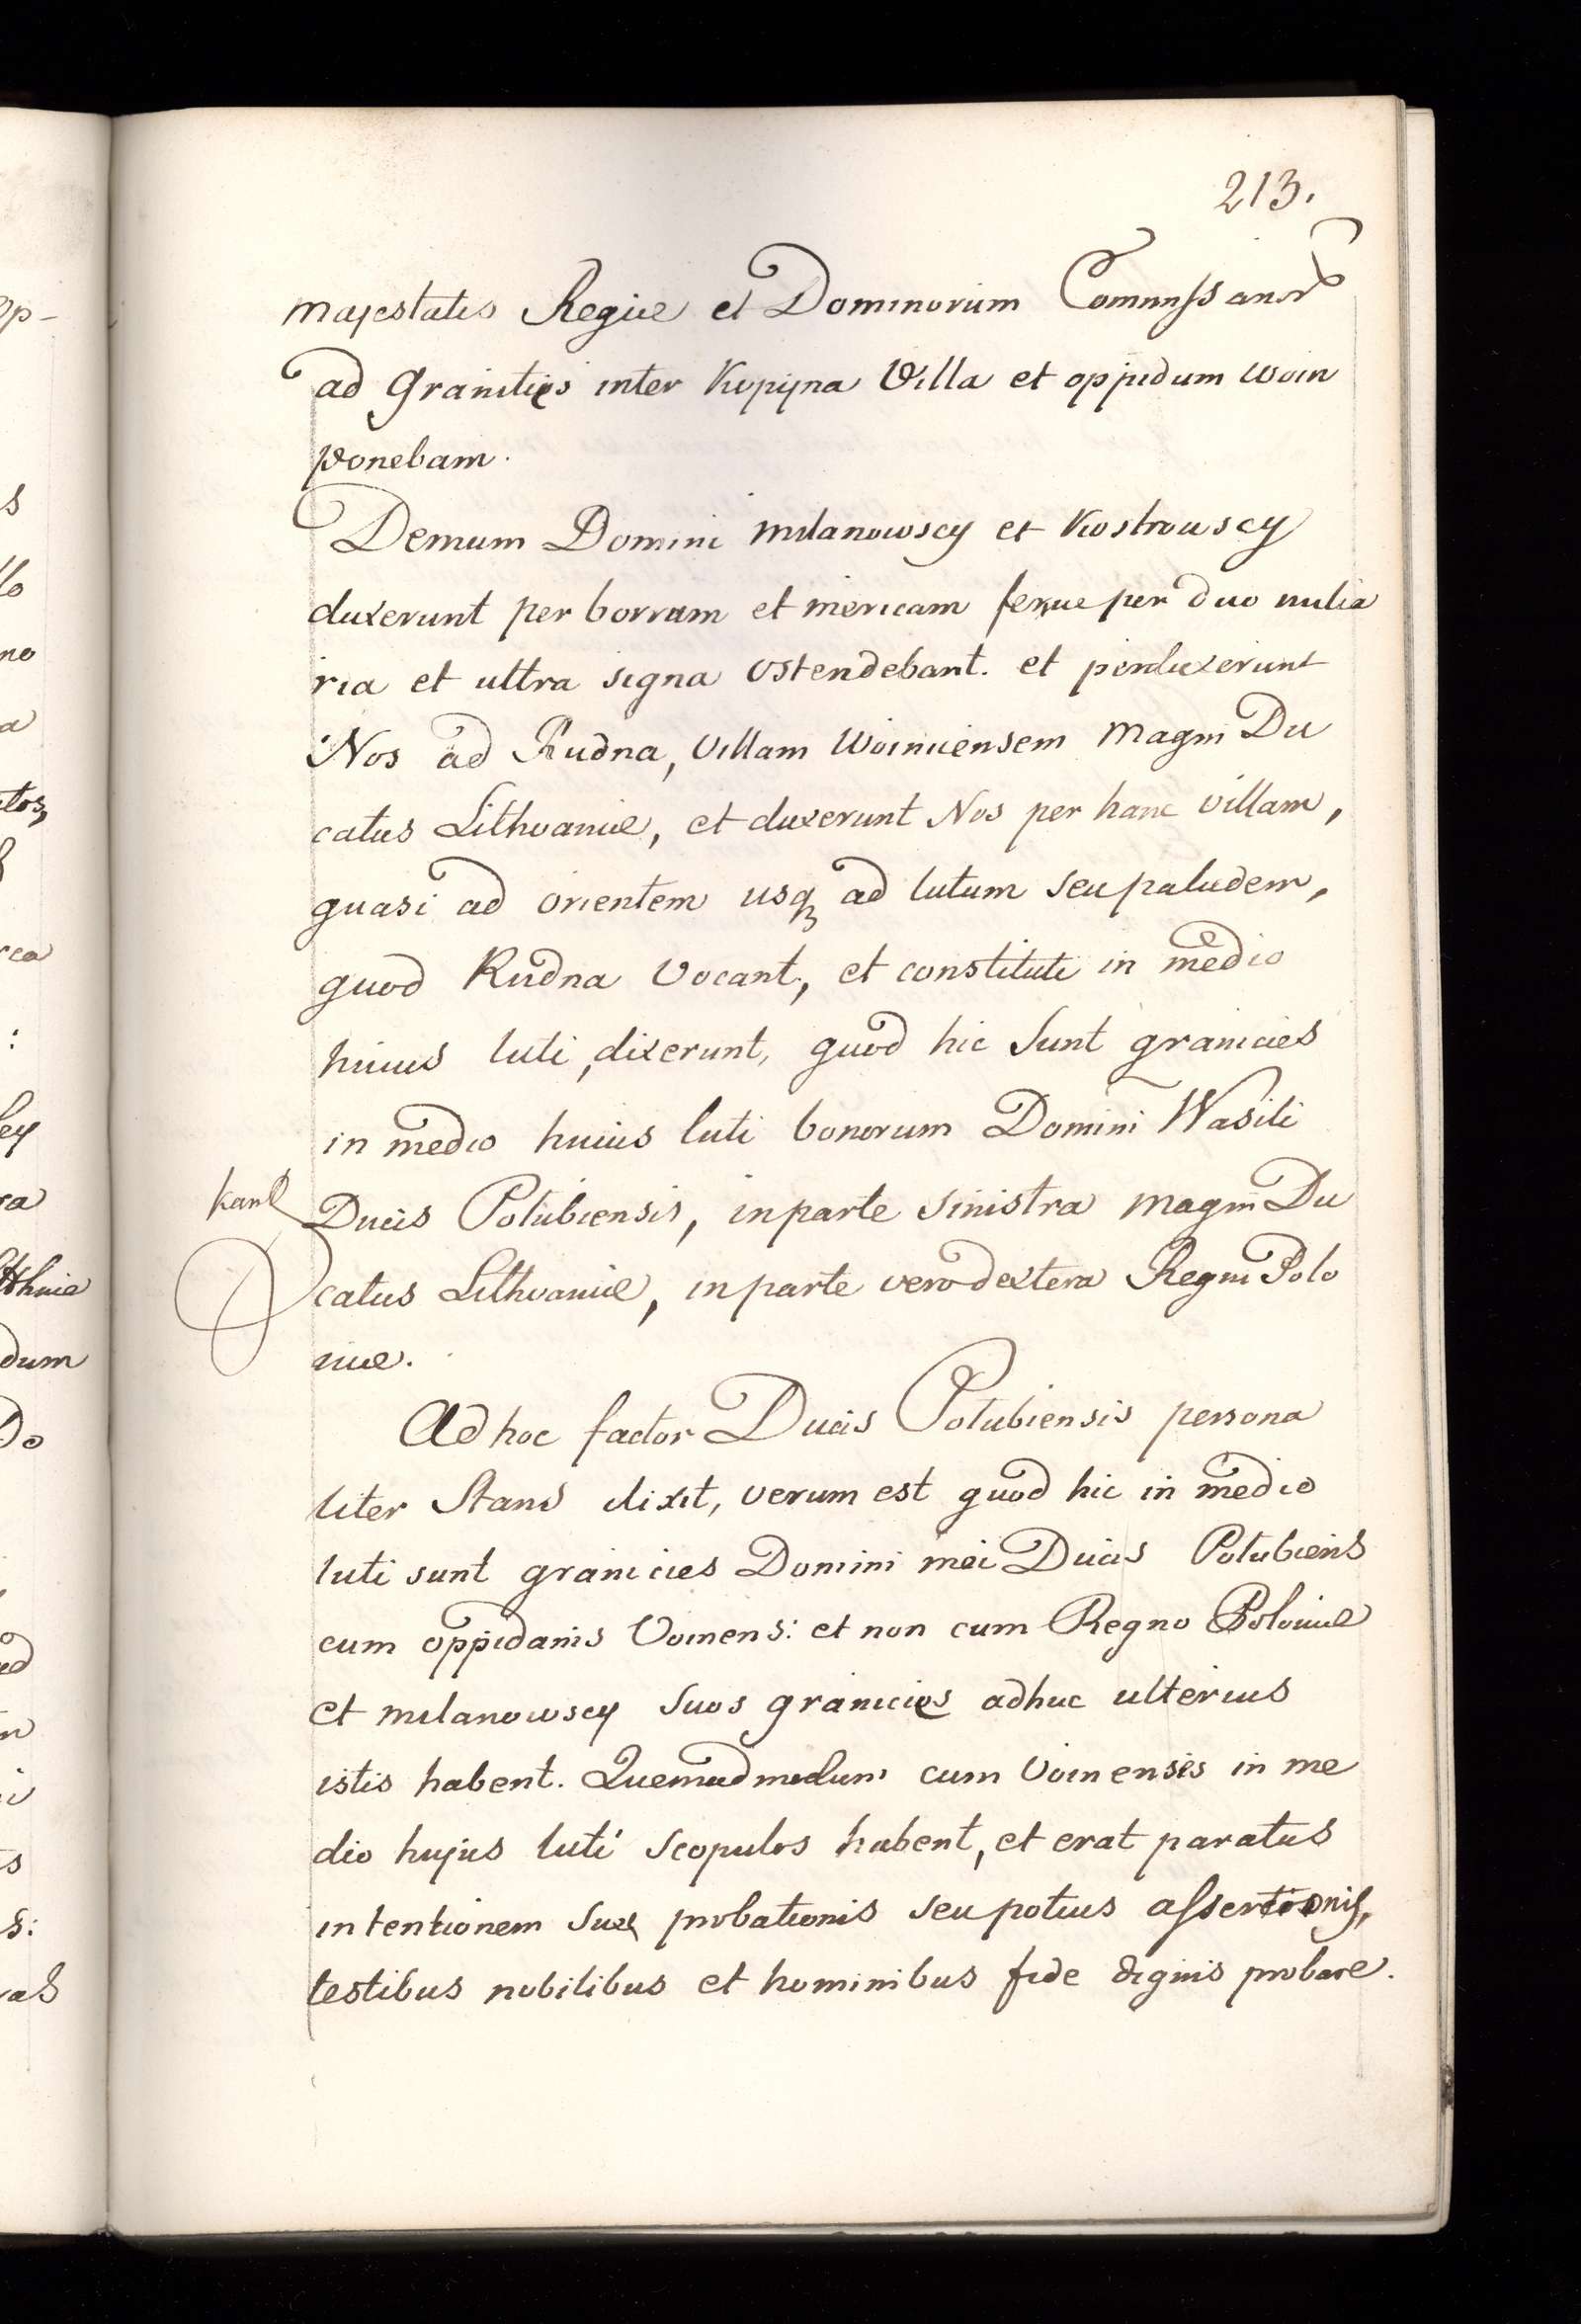 213.
majestatis Regiæ et Dominorum Commissarior
ad Granities inter Kopijna Villa et oppidum woin
ponebam.
Demum Domini milanowscy et Kostrowscy
duxerunt per borram et mericam ferme per duo milia
ria et ultra signa ostendebant. et perduxerunt
Nos ad Rudna, Villam Woinicensem Magni Du
catus Lithvaniæ, et duxerunt Nos per hanc villam,
quasi ad orientem usq ad lutum seu paludem,
quod Rudna Vocant, et constituti in medio
huius luti, dixerunt, quod hic sunt granicies
in medio huius luti bonorum Domini Wasili
Ducis Polubiensis, in parte sinistra Magni Du
catus Lithvaniæ, in parte vero dextera Regni Polo
niæ.
Ad hoc factor Ducis Polubiensis persona
liter Stans dixit, verum est quod hic in medio
luti sunt granicies Domini mei Ducis Polubiens
cum oppidanis Voinens: et non cum Regno Poloniæ
et milanowscy suos granicies adhuc ulterius
istis habent. Quemadmodum cum Voinenses in me
dio hujus luti scopulos habent, et erat paratus
intentionem suæ probationis seu potius assertionis,
testibus nobilibus et hominibus fide dignis probare.